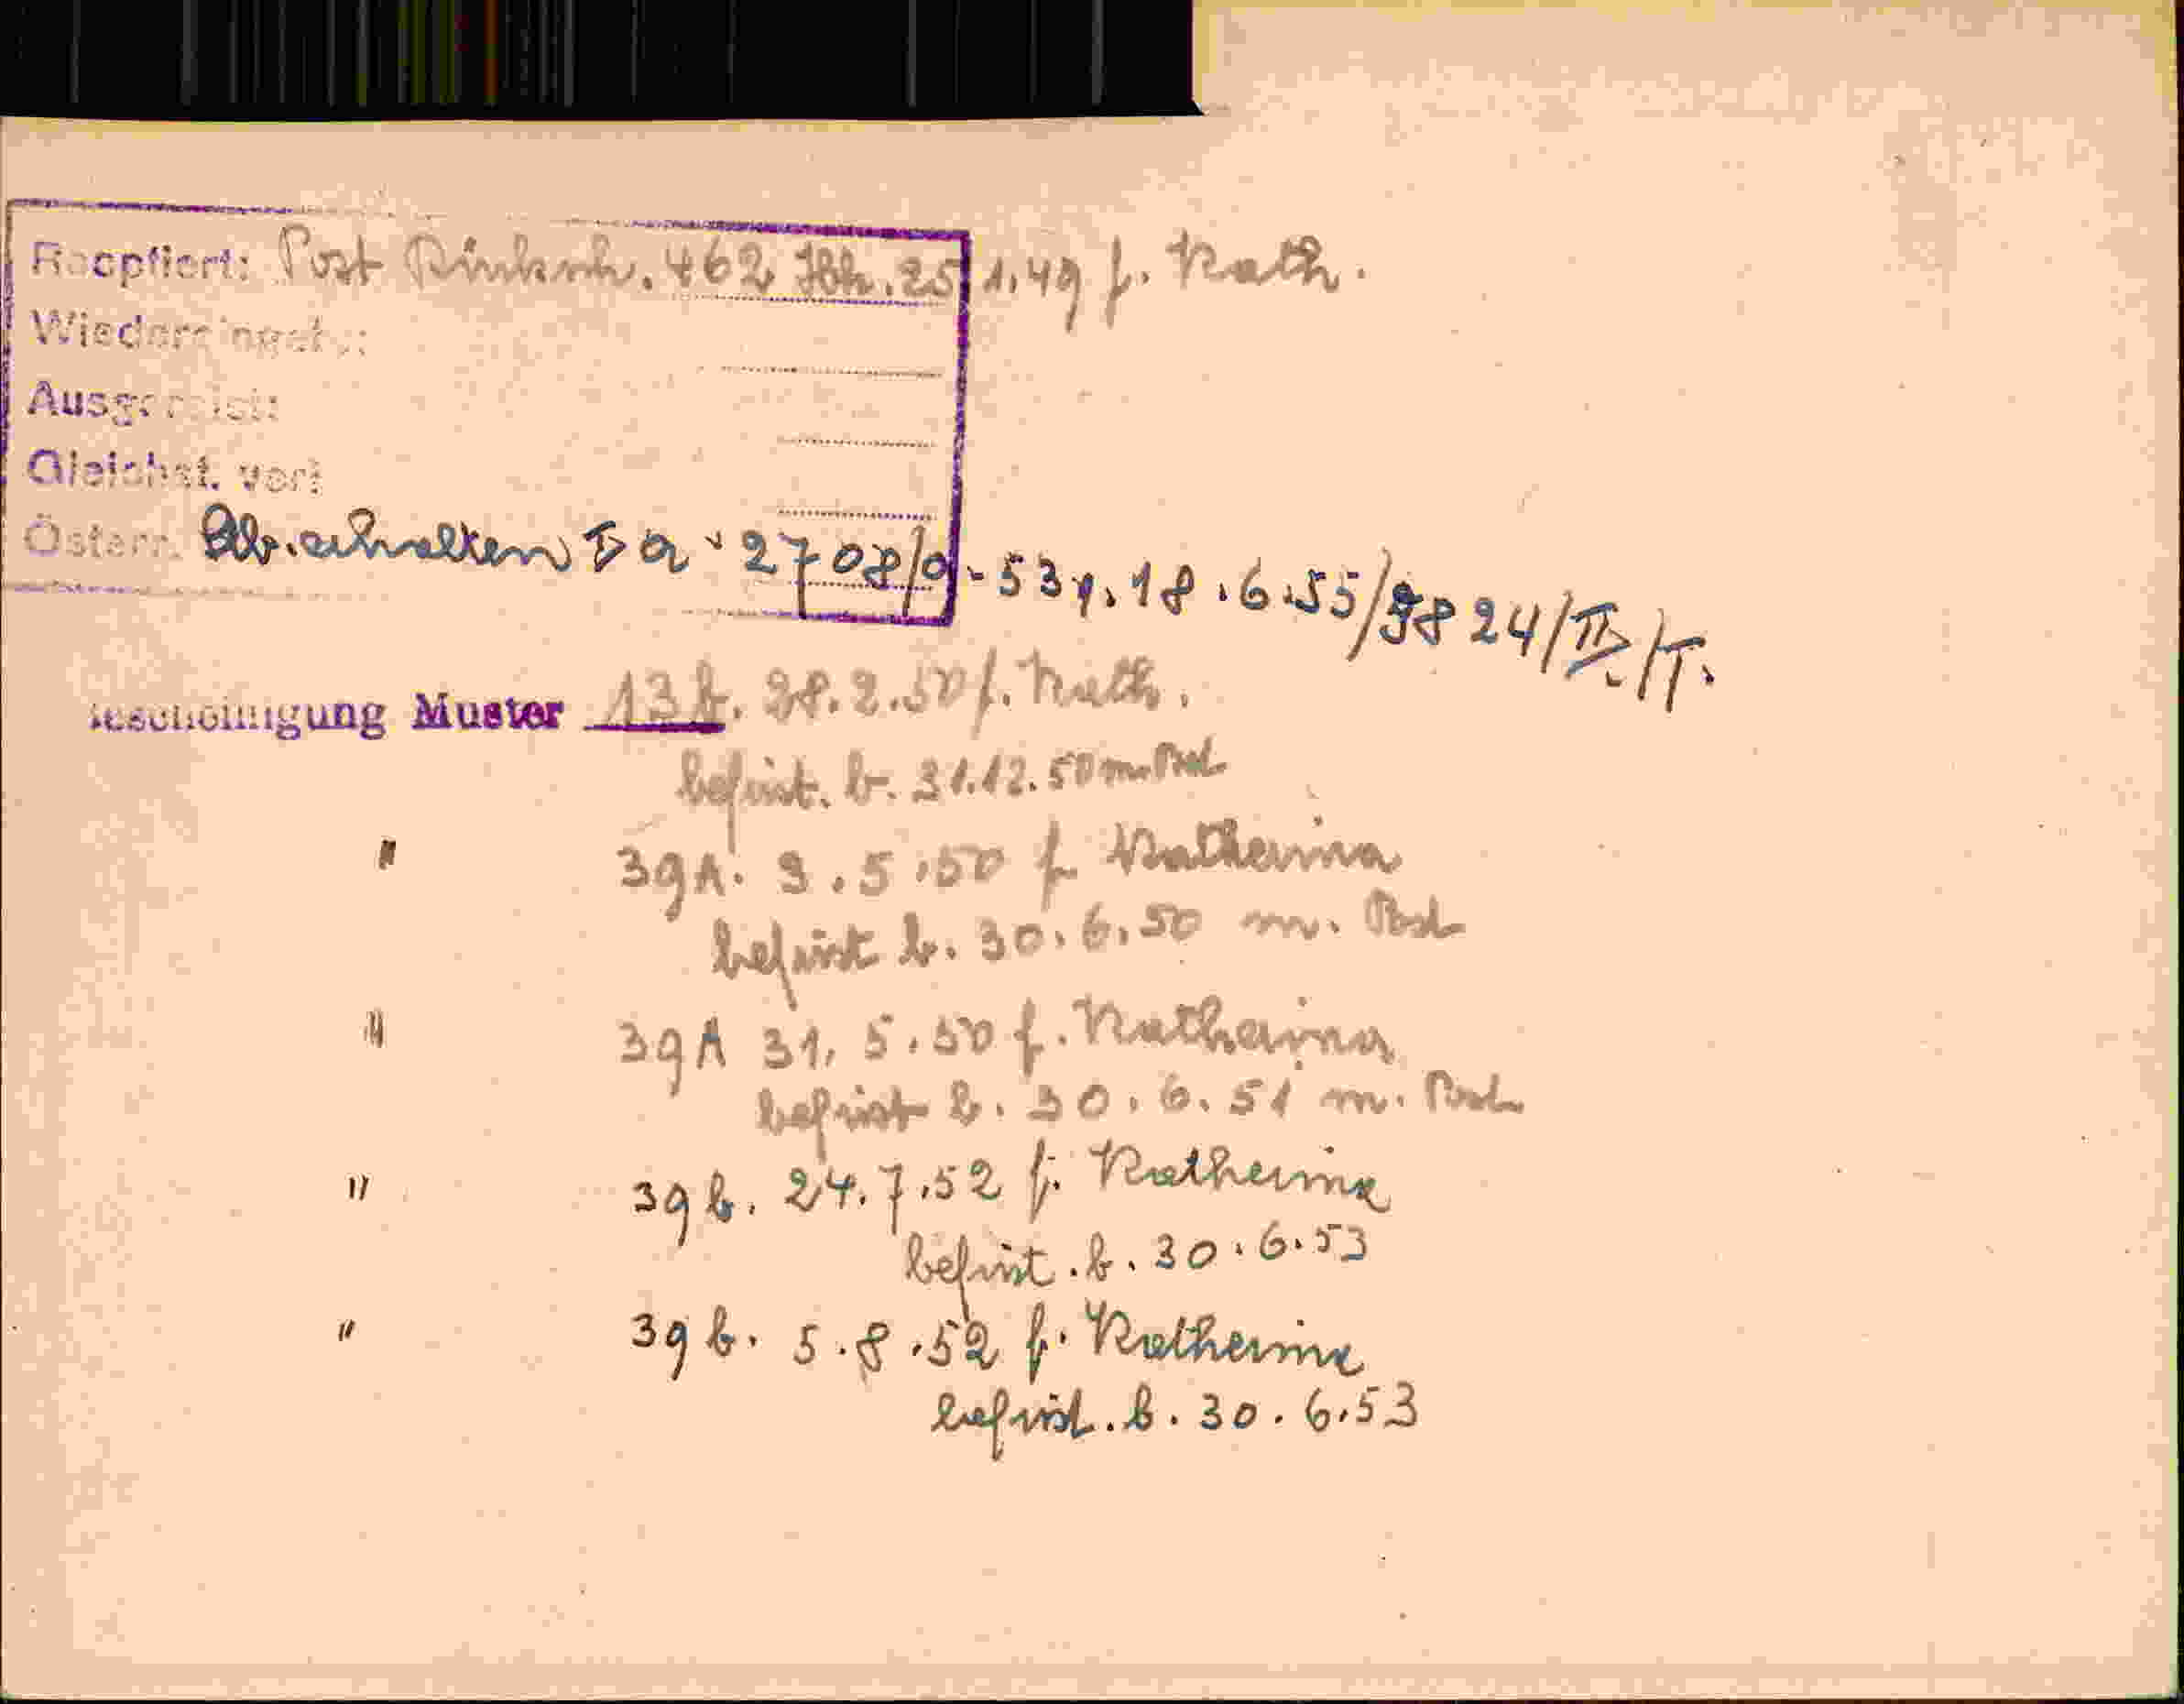 Reeptiert: Post Rückseh. 462 Jbk. 25.1.49 f. Kath.
Wiedereingest.:
Ausgereist:
Gleichst. verl
Österr.
27 08/0-53 v. 18.6.55/38 24/IV/T.
Bescheinigung Muster 13 b. 28.2.50 f. Kath.
befrist. b. 31.12.50 m. Post
" 39 A. 3.5.50 f. Katharina
befrist b. 30.6.50 m. Post
" 39 A 31.5.50 f. Katharina
befrist b. 30.6.51 m. Post
" 39 b. 24.7.52 f. Katharina
befrist. b. 30.6.53
" 39 b. 5.8.52 f. Katharina
befrist. b. 30.6.53